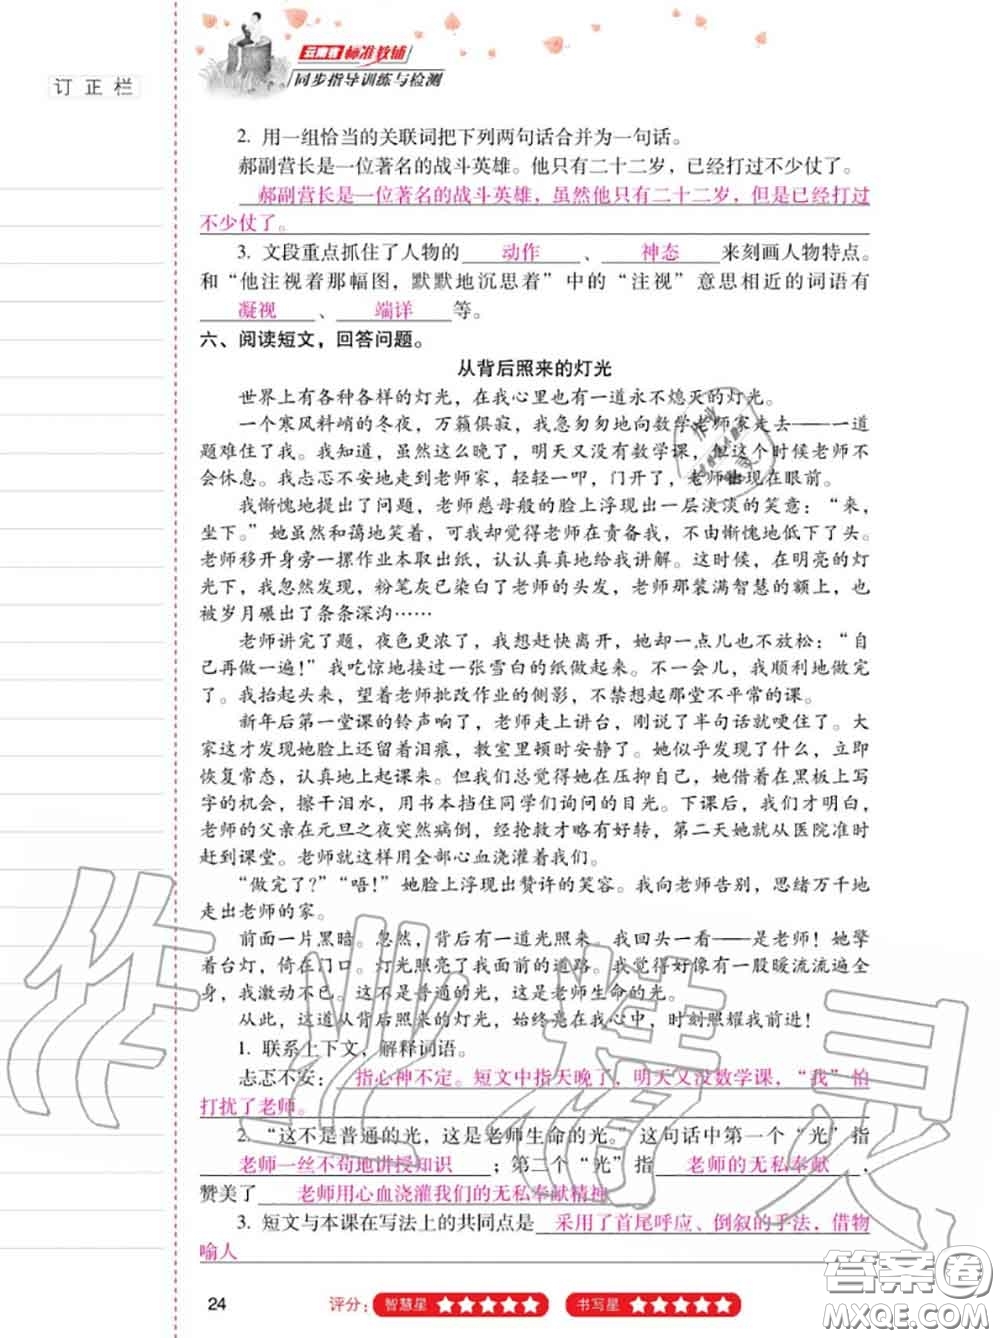 订正栏
云南省标准教辅
同步指导训练与检测
2. 用一组恰当的关联词把下列两句话合并为一句话。
郝副营长是一位著名的战斗英雄。他只有二十二岁，已经打过不少仗了。
郝副营长是一位著名的战斗英雄，虽然他只有二十二岁，但是已经打过
不少仗了。
3. 文段重点抓住了人物的 动作 、 神态 来刻画人物特点。
和“他注视着那幅图，默默地沉思着”中的“注视”意思相近的词语有
凝视 、 端详 等。
六、阅读短文，回答问题。
从背后照来的灯光
世界上有各种各样的灯光，在我心里也有一道永不熄灭的灯光。
一个寒风料峭的冬夜，万籁俱寂，我急匆匆地向数学老师家走去——一道
题难住了我。我知道，虽然这么晚了，明天又没有数学课，但这个时候老师不
会休息。我忐忑不安地走到老师家，轻轻一叩，门开了，老师出现在眼前。
我惭愧地提出了问题，老师慈母般的脸上浮现出一层淡淡的笑意：“来，
坐下。”她虽然和蔼地笑着，可我却觉得老师在责备我，不由惭愧地低下了头。
老师移开身旁一摞作业本取出纸，认认真真地给我讲解。这时候，在明亮的灯
光下，我忽然发现，粉笔灰已染白了老师的头发，老师那装满智慧的额上，也
被岁月碾出了条条深沟……
老师讲完了题，夜色更浓了，我想赶快离开，她却一点儿也不放松：“自
己再做一遍！”我吃惊地接过一张雪白的纸做起来。不一会儿，我顺利地做完
了。我抬起头来，望着老师批改作业的侧影，不禁想起那堂不平常的课。
新年后第一堂课的铃声响了，老师走上讲台，刚说了半句话就哽住了。大
家这才发现她脸上还留着泪痕，教室里顿时安静了。她似乎发现了什么，立即
恢复常态，认真地上起课来。但我们总觉得她在压抑自己，她借着在黑板上写
字的机会，擦干泪水，用书本挡住同学们询问的目光。下课后，我们才明白，
老师的父亲在元旦之夜突然病倒，经抢救才略有好转，第二天她就从医院准时
赶到课堂。老师就这样用全部心血浇灌着我们。
“做完了？”“唔！”她脸上浮现出赞许的笑容。我向老师告别，思绪万千地
走出老师的家。
前面一片黑暗。忽然，背后有一道光照来。我回头一看——是老师！她擎
着台灯，倚在门口。灯光照亮了我前面的道路。我觉得好像有一股暖流流遍全
身，我激动不已。这不是普通的光，这是老师生命的光。
从此，这道从背后照来的灯光，始终亮在我心中，时刻照耀我前进！
1. 联系上下文，解释词语。
忐忑不安： 指心神不定。短文中指天晚了，明天又没数学课，“我”怕
打扰了老师。
2. “这不是普通的光，这是老师生命的光。”这句话中第一个“光”指
老师一丝不苟地讲授知识 ；第二个“光”指 老师的无私奉献 ，
赞美了 老师用心血浇灌我们的无私奉献精神
3. 短文与本课在写法上的共同点是 采用了首尾呼应、倒叙的手法，借物
喻人
24 评分： 智慧星 ★★★★★ 书写星 ★★★★★
作业精灵
答案卷
MXQE.COM